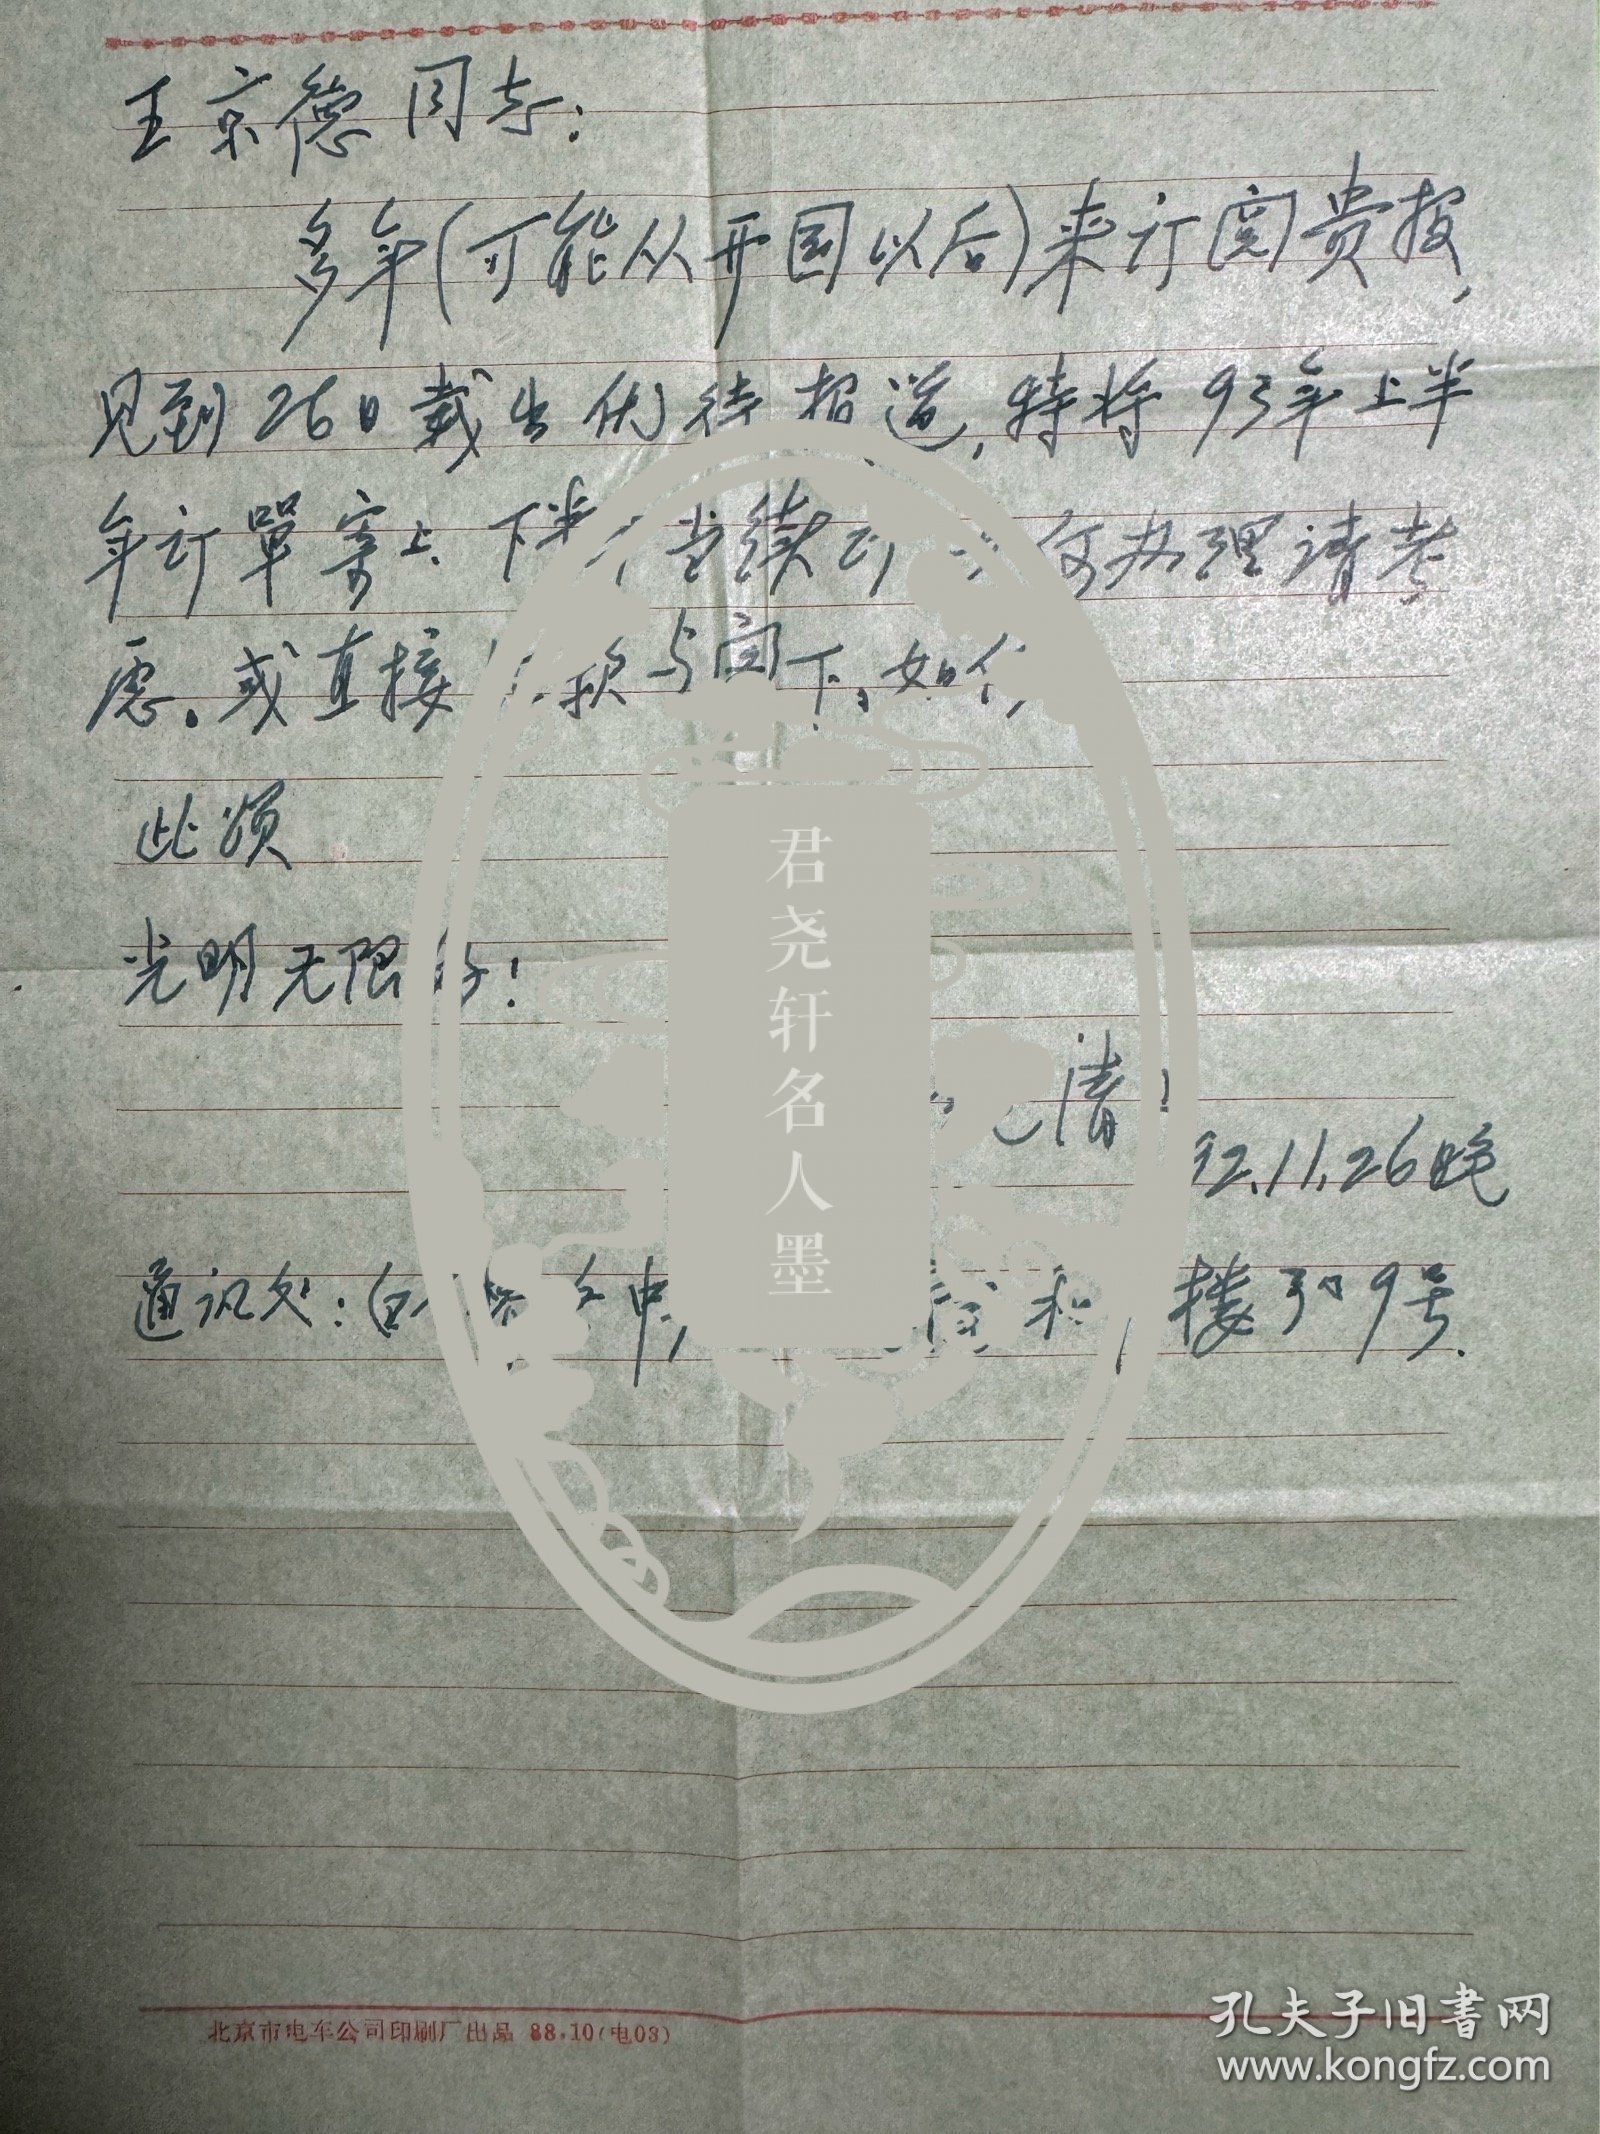 王京德同志:
多年(可能从开国以后)来订阅贵报,
见到26日载出优待报道,特将93年上半
年订單寄上.下半年当续订 何办理请考
虑。或直接 款与阁下,如何
此颂
光明无限好!
清
92.11.26晚
通讯处: 白 楼 9号.
君尧轩名人墨
北京市电车公司印刷厂出品 88.10(电03)
孔夫子旧書网
www.kongfz.com